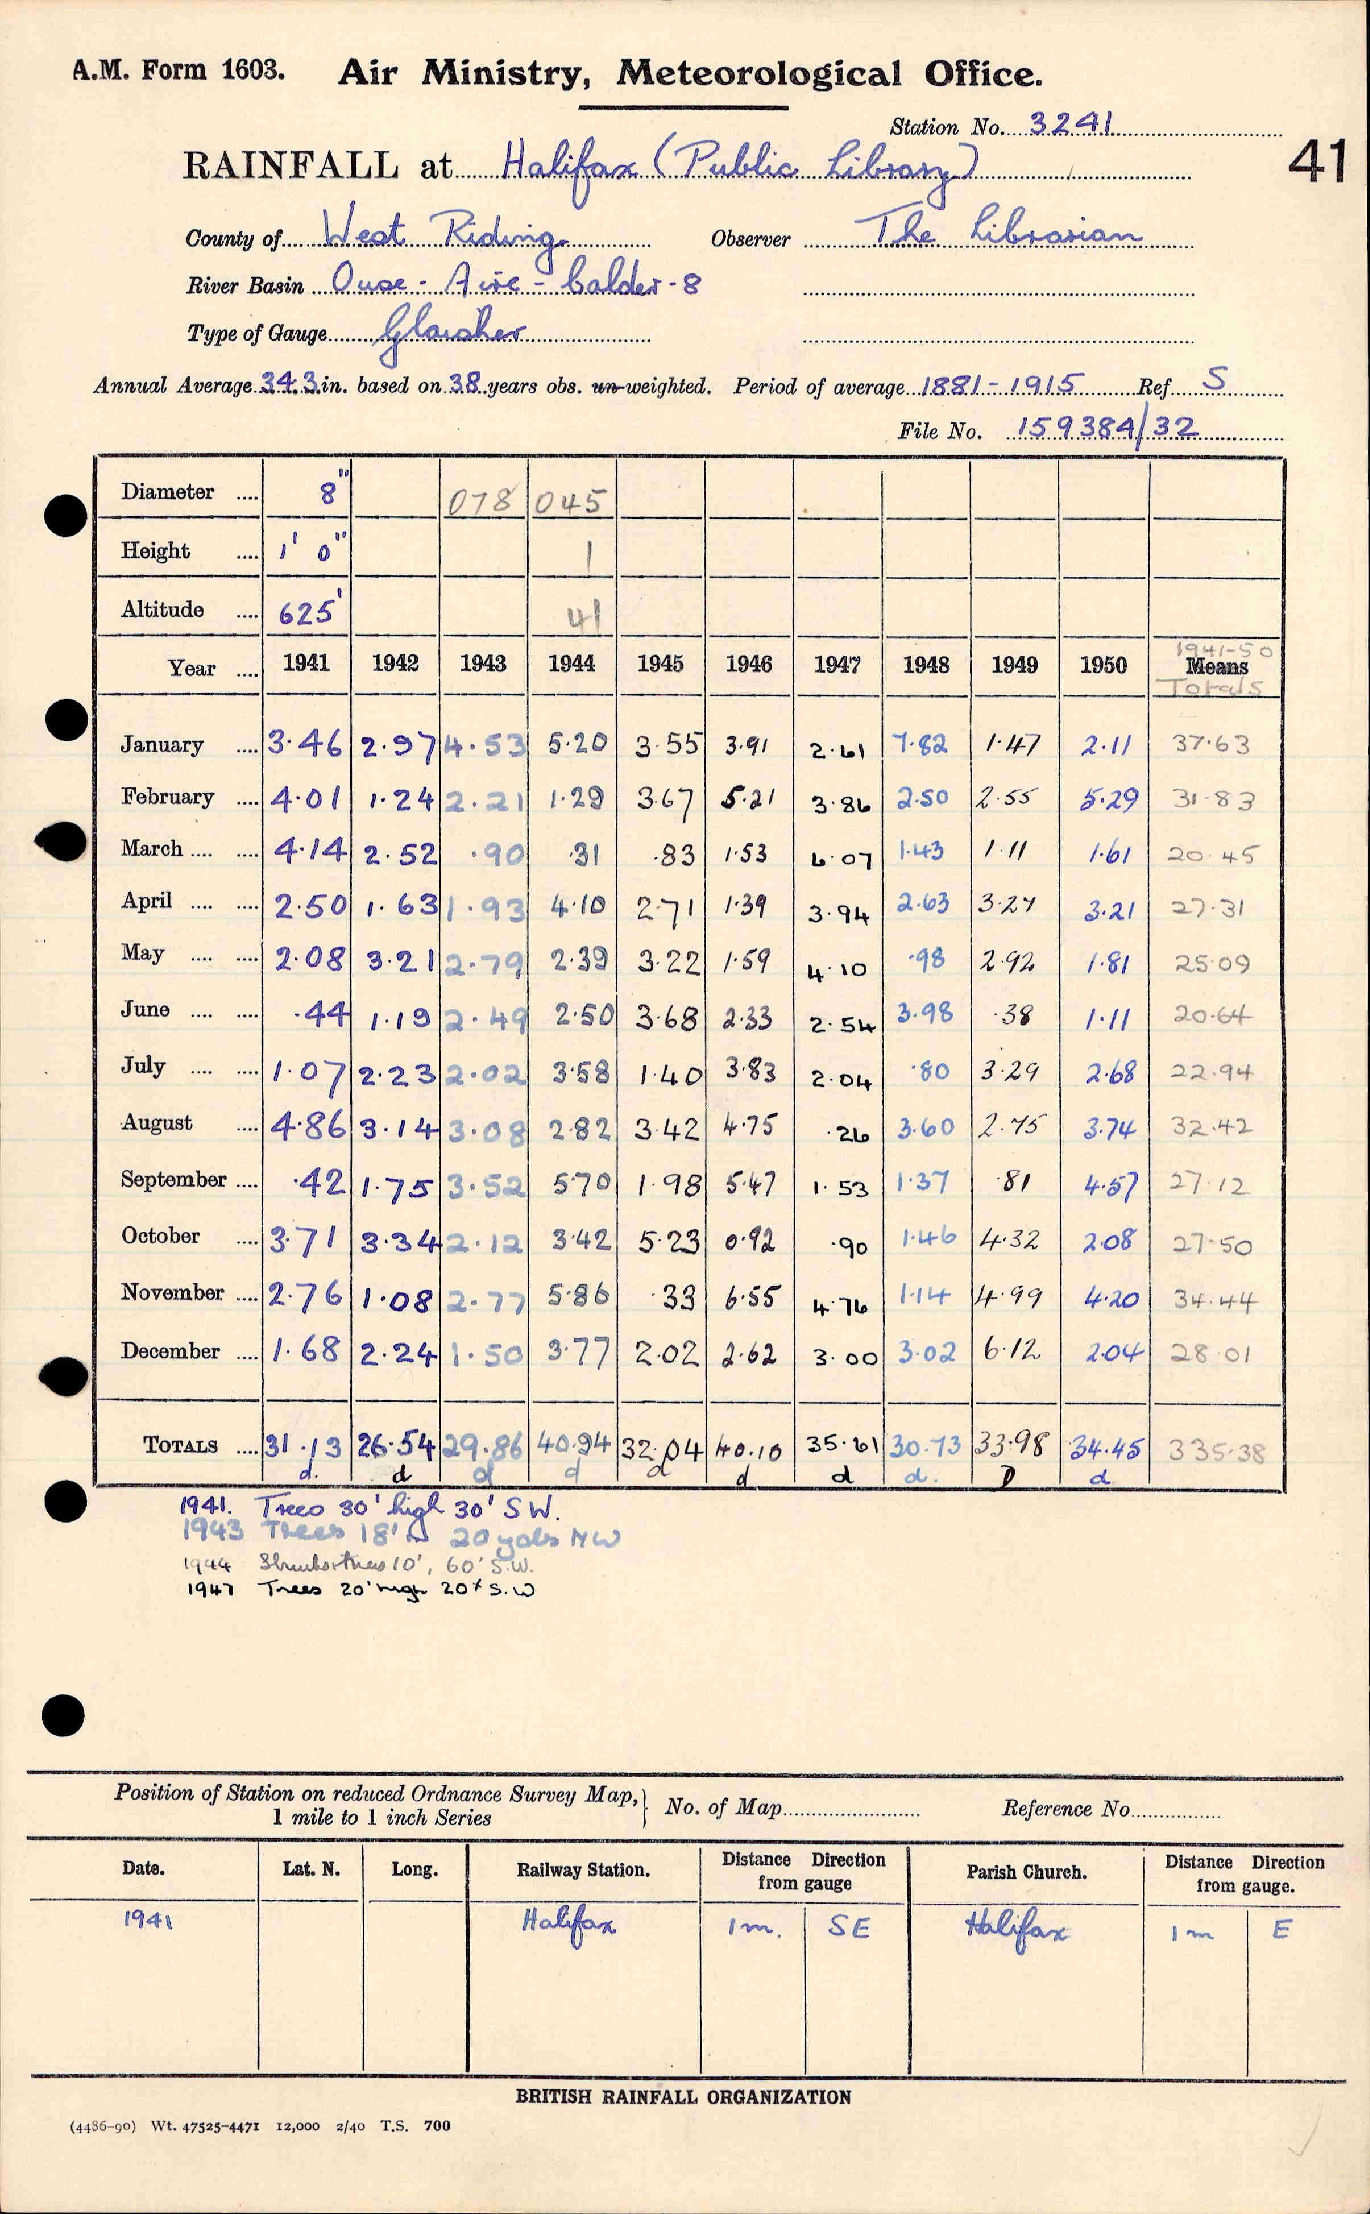 A.M. Form 1603. Air Ministry, Meteorological Office.
Station No. 3241
41
RAINFALL at Halifax (Public Library)
County of West Riding Observer The Librarian
River Basin Ouse - Aire - Calder - 8
Type of Gauge Glaisher
Annual Average 34.3 in. based on 38 years obs. un-weighted. Period of average 1881-1915 Ref S
File No. 159384/32
Diameter .... 8" 078 045
Height .... 1' 0" 1
Altitude .... 625' 41
Year .... 1941 1942 1943 1944 1945 1946 1947 1948 1949 1950 1941-50 Means Totals
January .... 3.46 2.97 4.53 5.20 3.55 3.91 2.61 7.82 1.47 2.11 37.63
February .... 4.01 1.24 2.21 1.29 3.67 5.21 3.86 2.50 2.55 5.29 31.83
March .... .... 4.14 2.52 .90 .31 .83 1.53 6.07 1.43 1.11 1.61 20.45
April .... .... 2.50 1.63 1.93 4.10 2.71 1.39 3.94 2.63 3.27 3.21 27.31
May .... .... 2.08 3.21 2.79 2.39 3.22 1.59 4.10 .98 2.92 1.81 25.09
June .... .... .44 1.19 2.49 2.50 3.68 2.33 2.54 3.98 .38 1.11 20.64
July .... .... 1.07 2.23 2.02 3.58 1.40 3.83 2.04 .80 3.29 2.68 22.94
August .... 4.86 3.14 3.08 2.82 3.42 4.75 .26 3.60 2.75 3.74 32.42
September .... .42 1.75 3.52 5.70 1.98 5.47 1.53 1.37 .81 4.57 27.12
October .... 3.71 3.34 2.12 3.42 5.23 0.92 .90 1.46 4.32 2.08 27.50
November .... 2.76 1.08 2.77 5.86 .33 6.55 4.76 1.14 4.99 4.20 34.44
December .... 1.68 2.24 1.50 3.77 2.02 2.62 3.00 3.02 6.12 2.04 28.01
TOTALS .... 31.13 26.54 29.86 40.94 32.04 40.10 35.61 30.73 33.98 34.45 335.38
d. d d d d d d d. D d
1941. Trees 30' high 30' S W.
1943 Trees 18' 20 yds NW
1944 Shrubs + trees 10', 60' S.W.
1947 Trees 20' high 20x S.W
Position of Station on reduced Ordnance Survey Map, 1 mile to 1 inch Series } No. of Map Reference No.
Date. Lat. N. Long. Railway Station. Distance Direction from gauge Parish Church. Distance Direction from gauge.
1941 Halifax 1m. SE Halifax 1m E
BRITISH RAINFALL ORGANIZATION
(4486-90) Wt. 47525-4471 12,000 2/40 T.S. 700